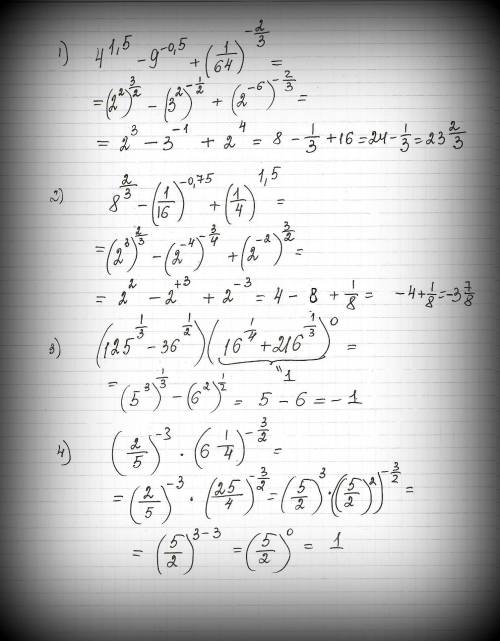 1) 4^{1,5} - 9^{-0,5} + (1/64)^{-2/3} =
= (2^2)^{3/2} - (3^2)^{-1/2} + (2^{-6})^{-2/3} =
= 2^3 - 3^{-1} + 2^4 = 8 - 1/3 + 16 = 24 - 1/3 = 23 2/3
2) 8^{2/3} - (1/16)^{-0,75} + (1/4)^{1,5} =
= (2^3)^{2/3} - (2^{-4})^{-3/4} + (2^{-2})^{3/2} =
= 2^2 - 2^{+3} + 2^{-3} = 4 - 8 + 1/8 = -4 + 1/8 = -3 7/8
3) (125^{1/3} - 36^{1/2}) (16^{1/4} + 216^{1/3})^0 =
" 1
= (5^3)^{1/3} - (6^2)^{1/2} = 5 - 6 = -1
4) (2/5)^{-3} · (6 1/4)^{-3/2} =
= (2/5)^{-3} · (25/4)^{-3/2} = (5/2)^3 · ((5/2)^2)^{-3/2} =
= (5/2)^{3-3} = (5/2)^0 = 1